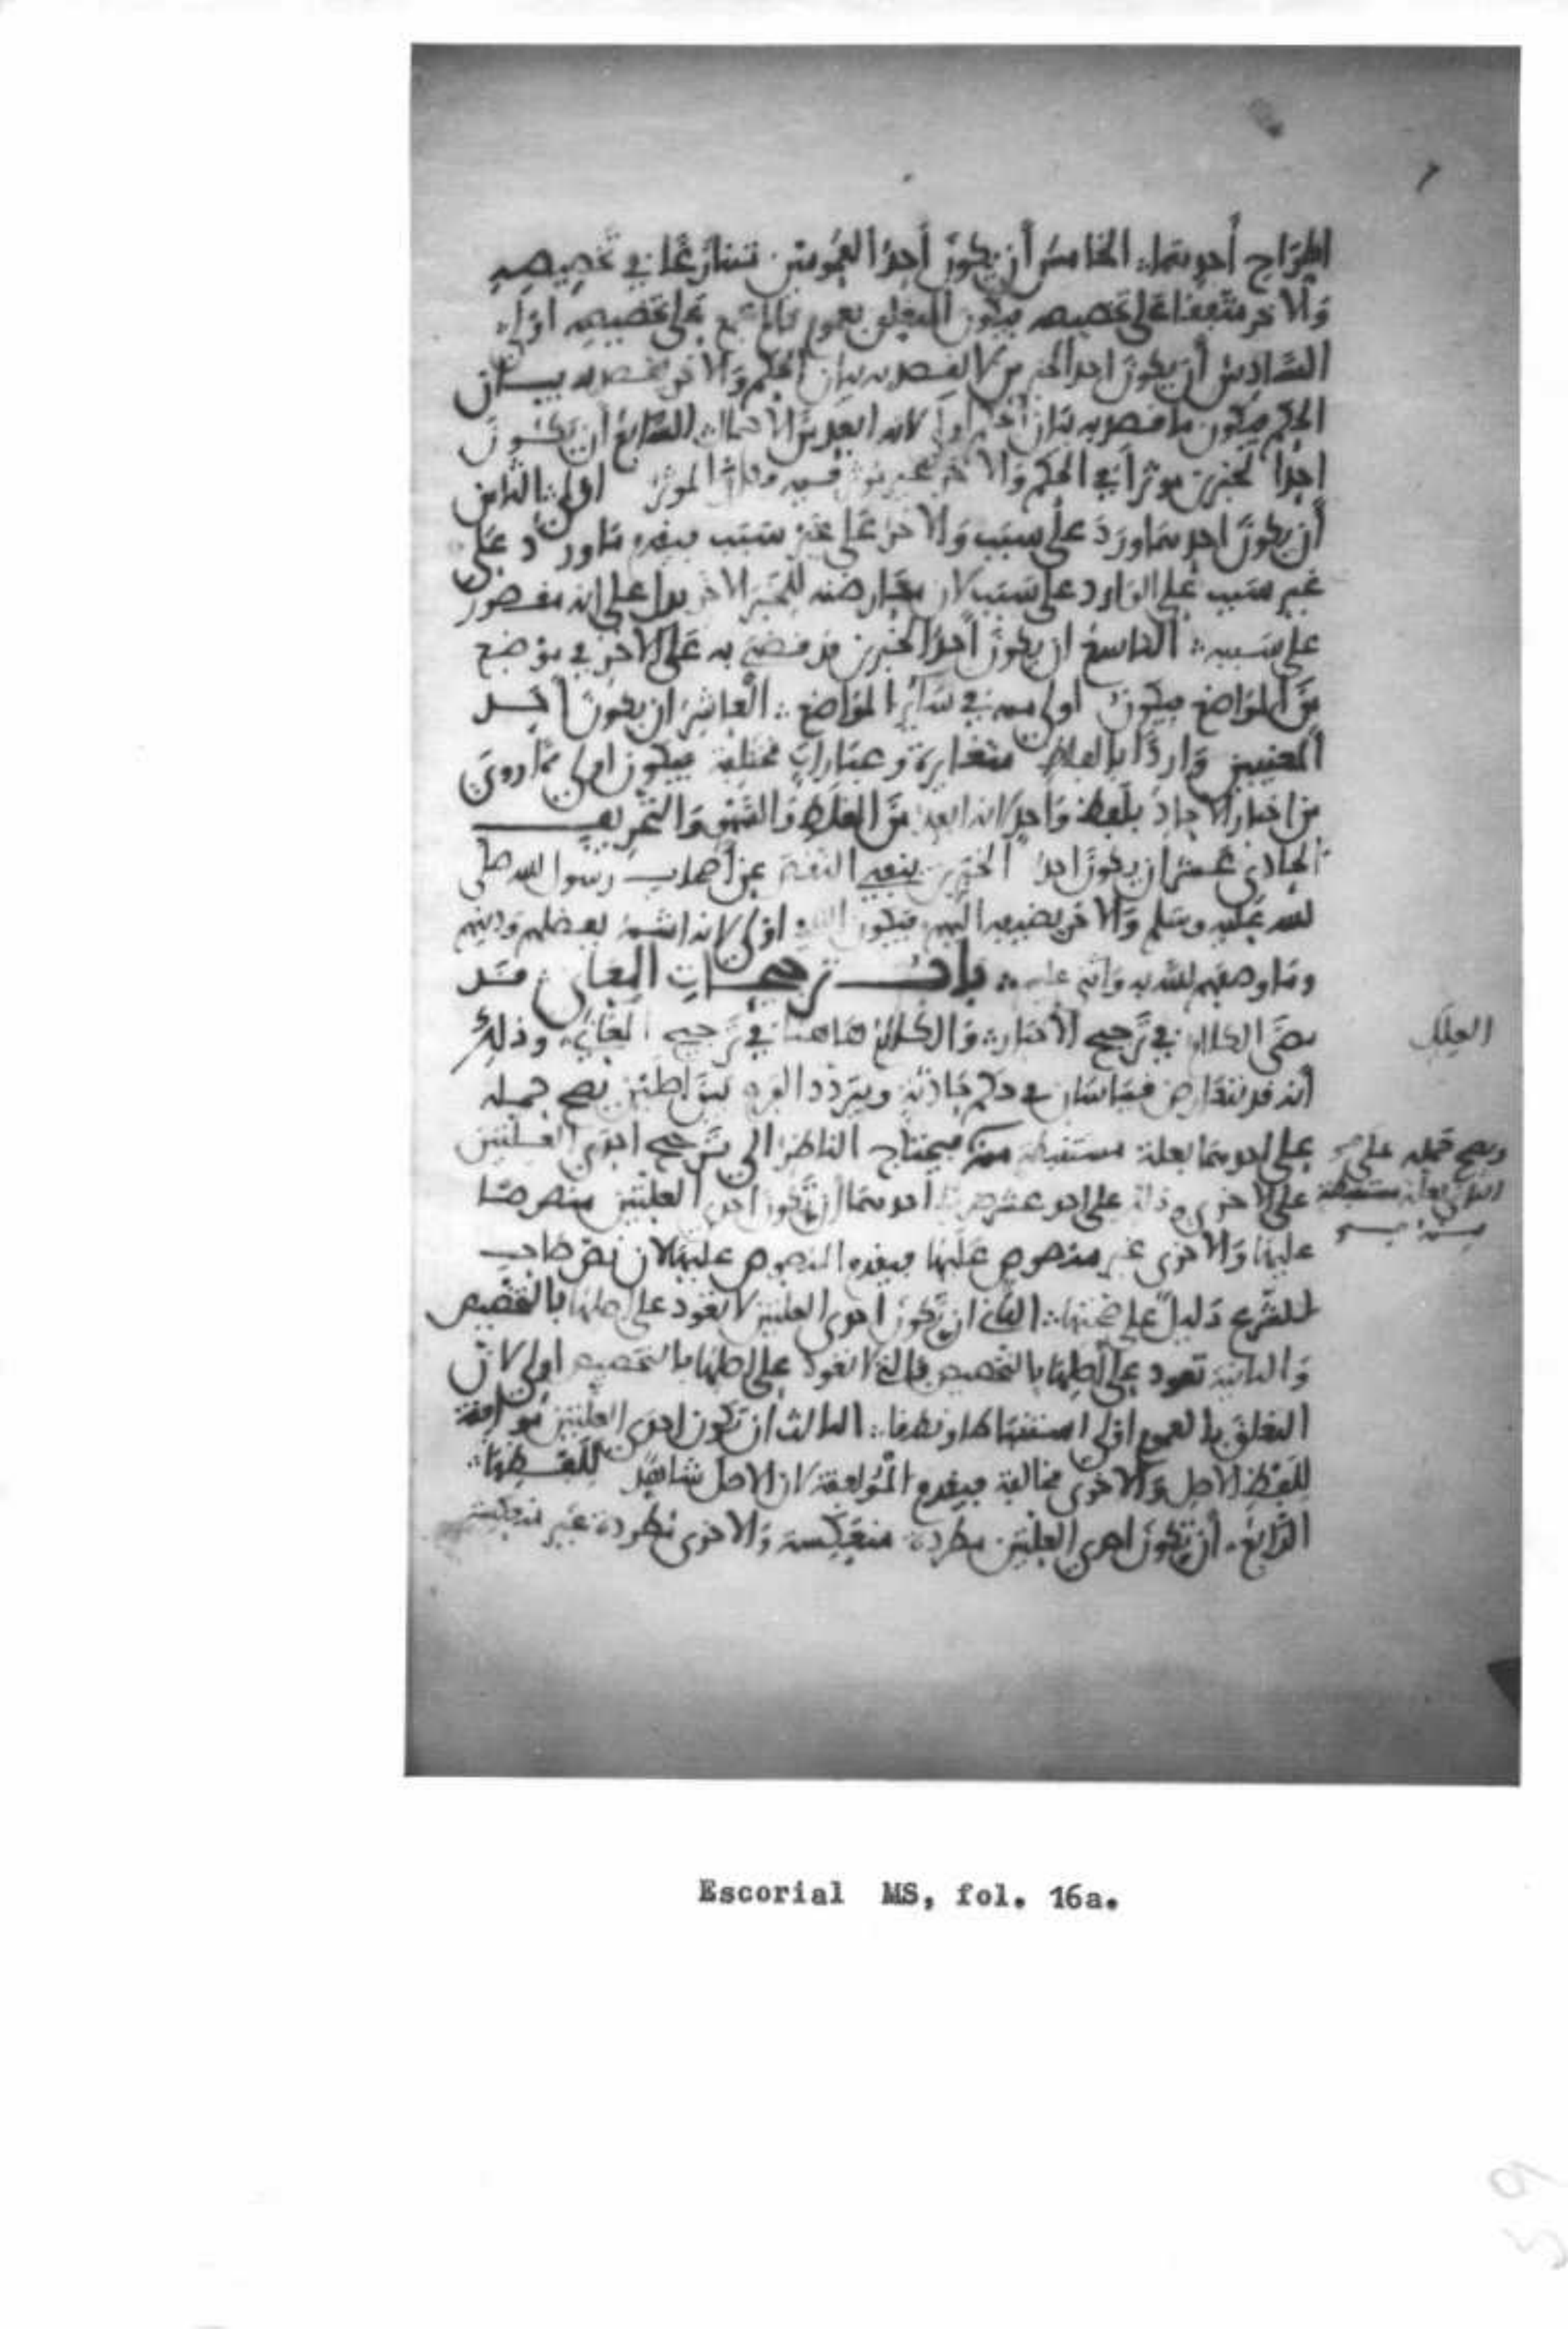 اطراح أحدهما ∴ الخامس أن يكون أحد العمومين متنازعا في تخصيصه
والآخر متفقا على تخصيصه فيكون التعلق بعموم ما لم يجمع على تخصيصه أولى ∴
السادس أن يكون أحد الخبرين لا يقصد به بيان الحكم والآخر يقصد به بيان
الحكم فيكون ما قصد به بيان الحكم أولى لأنه أبعد من الاحتمال ∴ السابع أن يكون
أحد الخبرين موثرا في الحكم والآخر غير موثر فيه فيكون الموثر أولى ∴ الثامن
أن يكون أحدهما ورد على سبب والآخر على غير سبب فيقدم ما ورد على
غير سبب على الوارد على سبب لأن معارضته للخبر الآخر يدل على أنه مقصور
على سببه ∴ التاسع أن يكون أحد الخبرين قد قضي به على الآخر في موضع
من المواضع فيكون أولى منه في سائر المواضع ∴ العاشر أن يكون أحد
المعنيين واردا بألفاظ متغايرة وعبارات مختلفة فيكون أولى مما روي
من أخبار الآحاد بلفظ واحد لأنه أبعد من الغلط والسهو والتحريف
الحادي عشر أن يكون أحد الخبرين ينفي النقص عن أصحاب رسول الله صلى
الله عليه وسلم والآخر يضيفه إليهم فيكون النافي أولى لأنه أشبه بفضلهم ودينهم
وما وصفهم الله به وأثنى عليهم ∴ باب ترجيحات المعاني ∴ قد
مضى الكلام في ترجيح الأخبار ∴ والكلام هاهنا في ترجيح المعاني وذلك
العلل
أنه قد يتعارض قياسان في حكم حادثة ويتردد الفرع بين أصلين يصح حمله
على أحدهما بعلة مستنبطة منه فيحتاج الناظر إلى ترجيح إحدى العلتين
ويصح حمله على
الثاني بعلة مستنبطة
منه
على الأخرى وذلك على أحد عشر ضربا أحدهما أن تكون إحدى العلتين منصوصا
عليها والأخرى غير منصوص عليها فيقدم المنصوص عليها لأن نص صاحب
الشرع دليل على صحتها ∴ الثاني أن تكون إحدى العلتين لا تعود على أصلها بالتخصيص
والثانية تعود على أصلها بالتخصيص فالتي لا تعود على أصلها بالتخصيص أولى لأن
التعلق بالعموم أولى استنباطا ونطقا ∴ الثالث أن تكون إحدى العلتين موافقة
للفظ الأصل والأخرى مخالفة فيقدم الموافقة لأن الأصل شاهد للفظها ∴
الرابع ∴ أن تكون إحدى العلتين مطردة منعكسة والأخرى مطردة غير منعكسة
Escorial MS, fol. 16a.